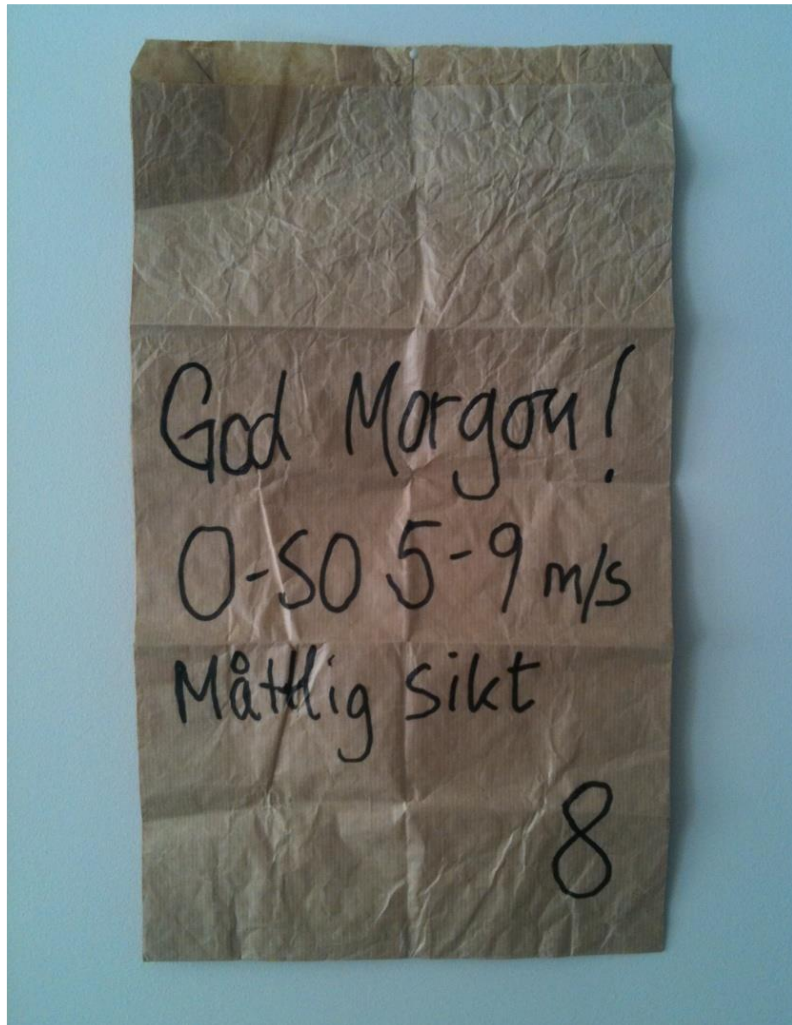 God Morgon!
O-SO 5-9 m/s
Måttlig sikt
8